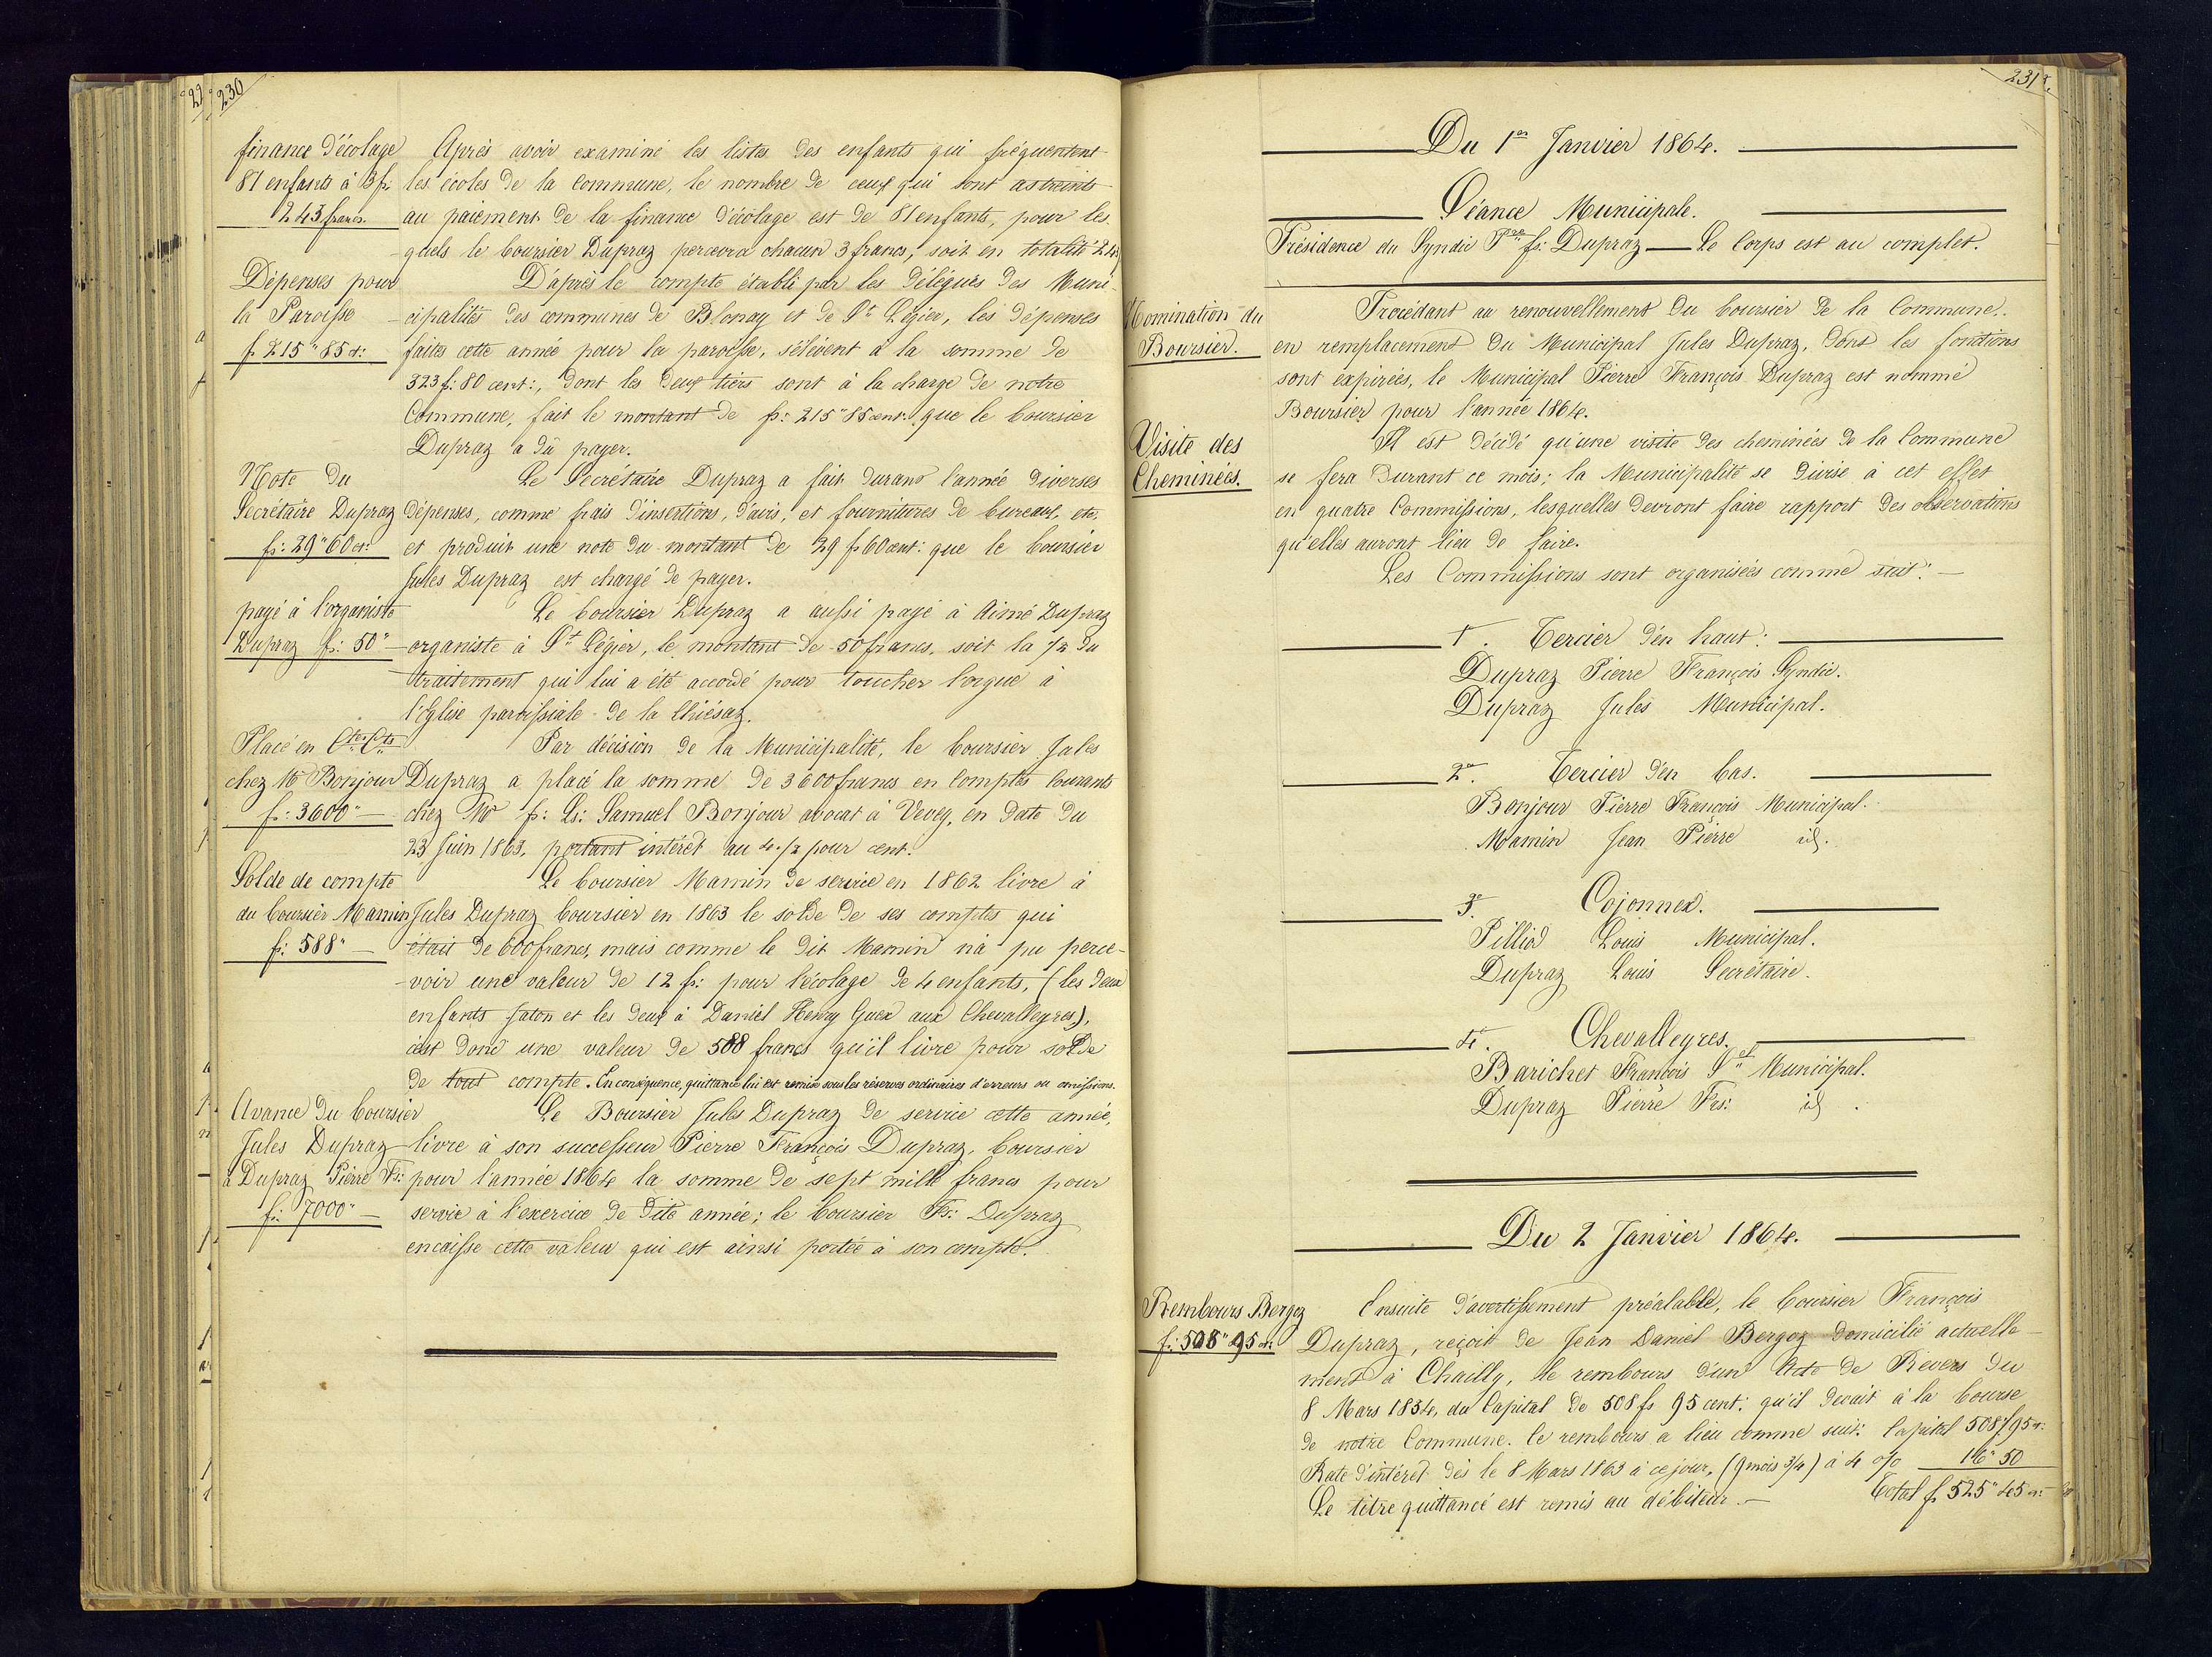 230
finance d'écolage
81 enfants à 3 fr
243 francs.
Après avoir examiné les listes des enfants qui fréquentent
les écoles de la Commune, le nombre de ceux qui sont astreints
au paiement de la finance d'écolage est de 81 enfants, pour les
quels le boursier Dupraz percevra chacun 3 francs, soit en totalité 243
Dépenses pour
la Paroisse
fr 215" 85 ct:
D'après le compte établi par les délégués des Muni-
cipalités des communes de Blonay et de St Légier, les dépenses
faites cette année pour la paroisse, s'élèvent à la somme de
323 f: 80 cent:, dont les deux tiers sont à la charge de notre
Commune, fait le montant de fr: 215" 85 cent: que le boursier
Dupraz a dû payer.
Note du
Secrétaire Dupraz
fr: 29" 60 ct:
Le Secrétaire Dupraz a fait durant l'année diverses
dépenses, comme frais d'insertions, d'avis, et fournitures de bureau, etc,
et produit une note du montant de 29 fr 60 cent: que le boursier
Jules Dupraz est chargé de payer.
payé à l'organiste
Dupraz fr: 50"
Le boursier Dupraz a aussi payé à Aimé Dupraz
organiste à St Légier, le montant de 50 francs, soit la 1/2 du
traitement qui lui a été accordé pour toucher l'orgue à
l'Eglise paroissiale de la Chiésaz.
Placé en Ctes Cts
chez Mr Bonjour
fr: 3600"
Par décision de la Municipalité, le boursier Jules
Dupraz a placé la somme de 3600 francs en Comptes Courants
chez Mr fr: Ls: Samuel Bonjour avocat à Vevey, en date du
23 Juin 1863, portant intérêt au 4 1/2 pour cent.
Solde de compte
du boursier Mamin
fr: 588"
Le boursier Mamin de service en 1862 livre à
Jules Dupraz boursier en 1863 le solde de ses comptes qui
était de 600 francs, mais comme le dit Mamin n'a pu perce-
voir une valeur de 12 fr: pour l'écolage de 4 enfants, (les deux
enfants Jaton et les deux à Daniel Henry Guex aux Chevalleyres),
c'est donc une valeur de 588 francs qu'il livre pour solde
de tout compte. En conséquence, quittance lui est remise sous les réserves ordinaires d'erreurs ou omissions.
Avance du boursier
Jules Dupraz
à Dupraz Pierre Fs:
fr: 7000"
Le Boursier Jules Dupraz de service cette année,
livre à son successeur Pierre François Dupraz, boursier
pour l'année 1864 la somme de sept mille francs pour
servir à l'exercice de dite année; le boursier Fs: Dupraz
encaisse cette valeur qui est ainsi portée à son compte.
231
Du 1er Janvier 1864.
Séance Municipale.
Présidence du Syndic Pre fs: Dupraz — Le Corps est au complet.
Nomination du
Boursier.
Procédant au renouvellement du boursier de la Commune,
en remplacement du Municipal Jules Dupraz, dont les fonctions
sont expirées, le Municipal Pierre François Dupraz est nommé
Boursier pour l'année 1864.
Visite des
Cheminées.
Il est décidé qu'une visite des cheminées de la Commune
se fera durant ce mois; la Municipalité se divise à cet effet
en quatre Commissions, lesquelles devront faire rapport des observations
qu'elles auront lieu de faire.
Les Commissions sont organisées comme suit:
1. Tercier d'en haut:
Dupraz Pierre François Syndic.
Dupraz Jules Municipal.
2e. Tercier d'en bas.
Bonjour Pierre François Municipal.
Mamin Jean Pierre id.
3e. Cojonnex.
Pilliod Louis Municipal.
Dupraz Louis Secrétaire.
4e. Chevalleyres.
Barichet François Sel Municipal.
Dupraz Pierre Frs: id.
Du 2 Janvier 1864.
Rembours Bergoz
fr: 508" 95 ct:
Ensuite d'avertissement préalable, le boursier François
Dupraz, reçoit de Jean Daniel Bergoz domicilié actuelle-
ment à Chailly, le rembours d'un Acte de Revers du
8 Mars 1834, du Capital de 508 fr 95 cent: qu'il devait à la bourse
de notre Commune. Ce rembours a lieu comme suit: Capital 508 f 95 ct:
Rate d'intérêt dès le 8 Mars 1863 à ce jour, (9 mois 3/4) à 4 o/o 16" 50
Le titre quittancé est remis au débiteur. — Total fr 525" 45 ct: